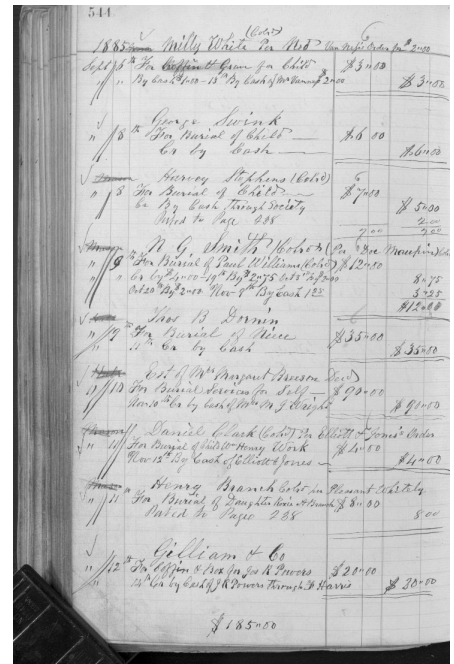 544
1885 Milly White Per Ned Van Ness Order for $2.00
(Cold)
Sept 5th For Coffin & Grave for Child $3.00
" " By Cash $1.00 - 13th By Cash of Mr Vanness $2.00 $3.00
George Swink
" 8th For Burial of Child $6.00
Cr by Cash $6.00
Harvey Stephens (Cold)
" 8 For Burial of Child $7.00
Cr By Cash Through Society $5.00
Posted to Page 238 2.00
7.00 7.00
N. G. Smith (Cold) (Per
" 9th For Burial of Paul Williams (Cold) $12.00
Cr by $4.00 - 19th By $2.75 Oct 3rd
8.75
Oct 20th By $2.00 Nov 9th By Cash 1.25
$12.00
Thos B. Dornin
" 9th For Burial of Niece $35.00
" 15th Cr by Cash $35.00
Est of Mrs Margaret Decd
" 10 For Burial Services for Self $90.00
Nov 10th Cr by Cash of Mrs M J Wright $90.00
Daniel Clark (Cold) Per Elliott & Jones Order
" 11 For Burial of Child Henry Work $4.00
Nov 12th By Cash of Elliott & Jones $4.00
Henry Branch Cold for Pleasant Whitely
" 11 For Burial of Daughter Rosie A Branch $8.00
Posted to Page 238 8.00
Gilliam & Co
" 12th For Coffin & Box for Jos R Powers $20.00
" 14th Cr by Cash of J R Powers through Harris $20.00
$185.00